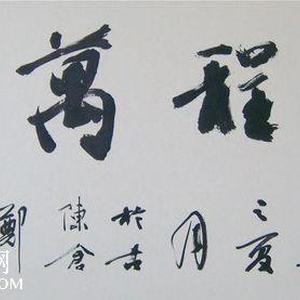 程萬
之夏
月
於古
陳倉
鄭
网